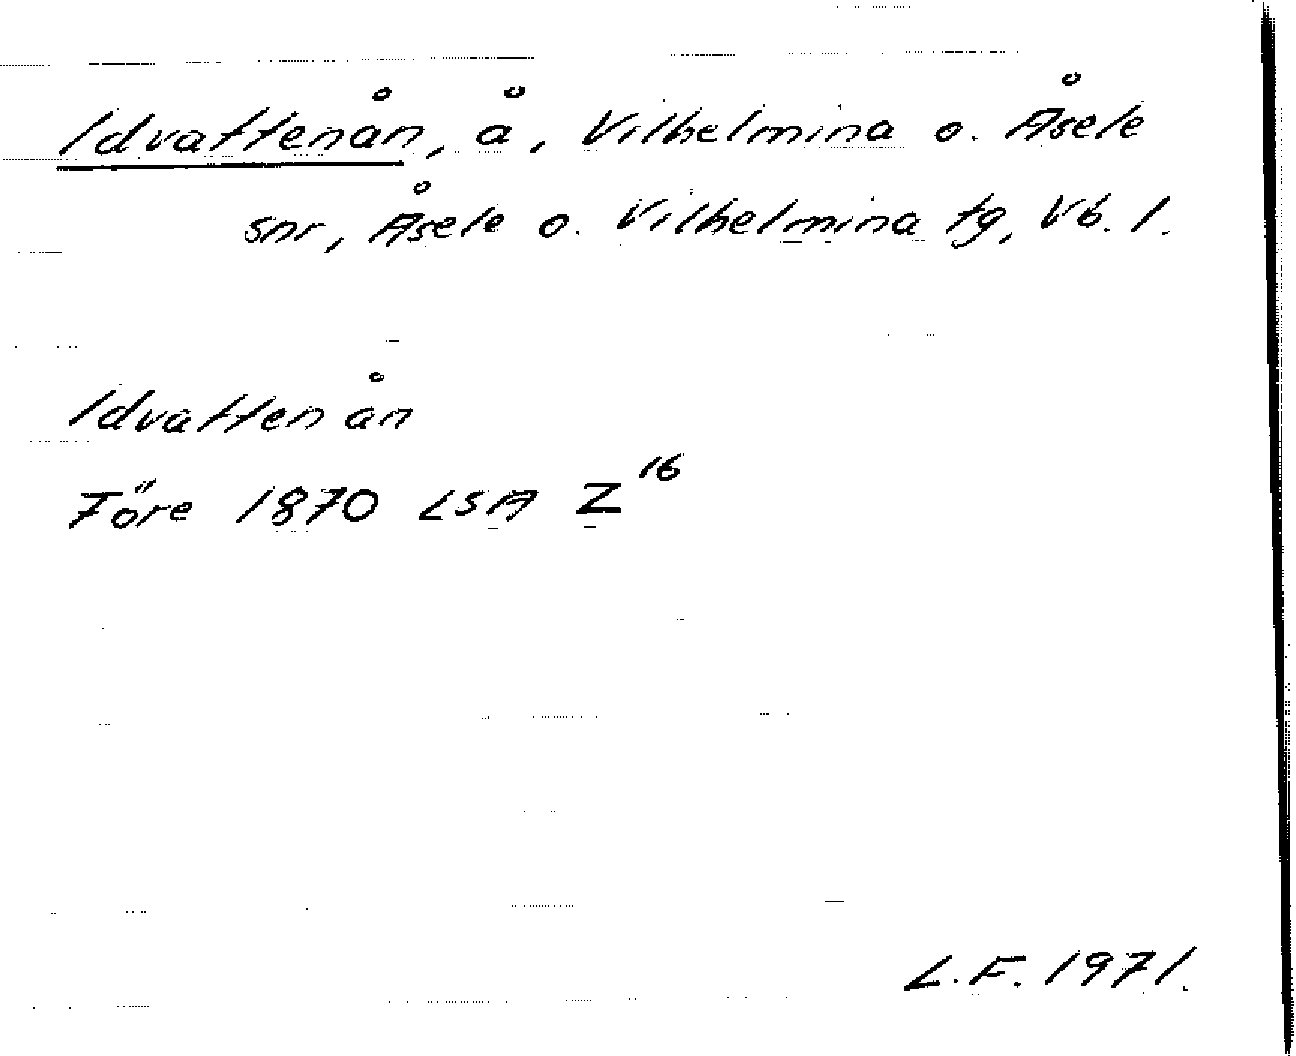 Idvattenån, å, Vilhelmina o. Åsele
snr, Åsele o. Vilhelmina tg, Vb. l.
Idvattenån
Före 1870 LSA Z 16
L.F. 1971.